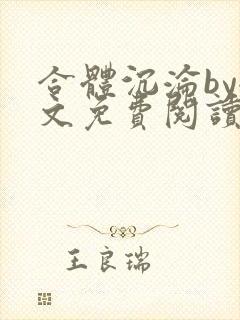 合體沉淪by
文免費閱讀
王良瑞